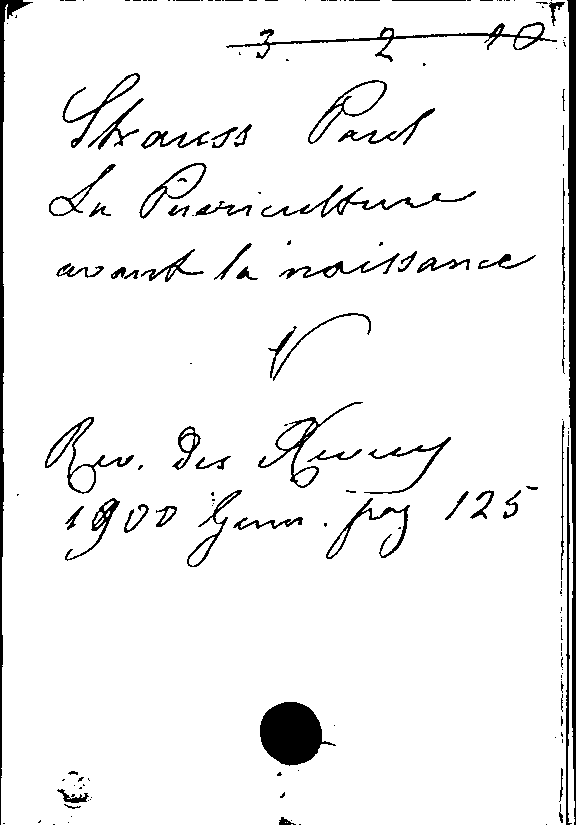 3. 2. 10
Strauss Paul
La Puériculture
avant la naissance
V
Rev. des Revues
1900 Genn. pag 125